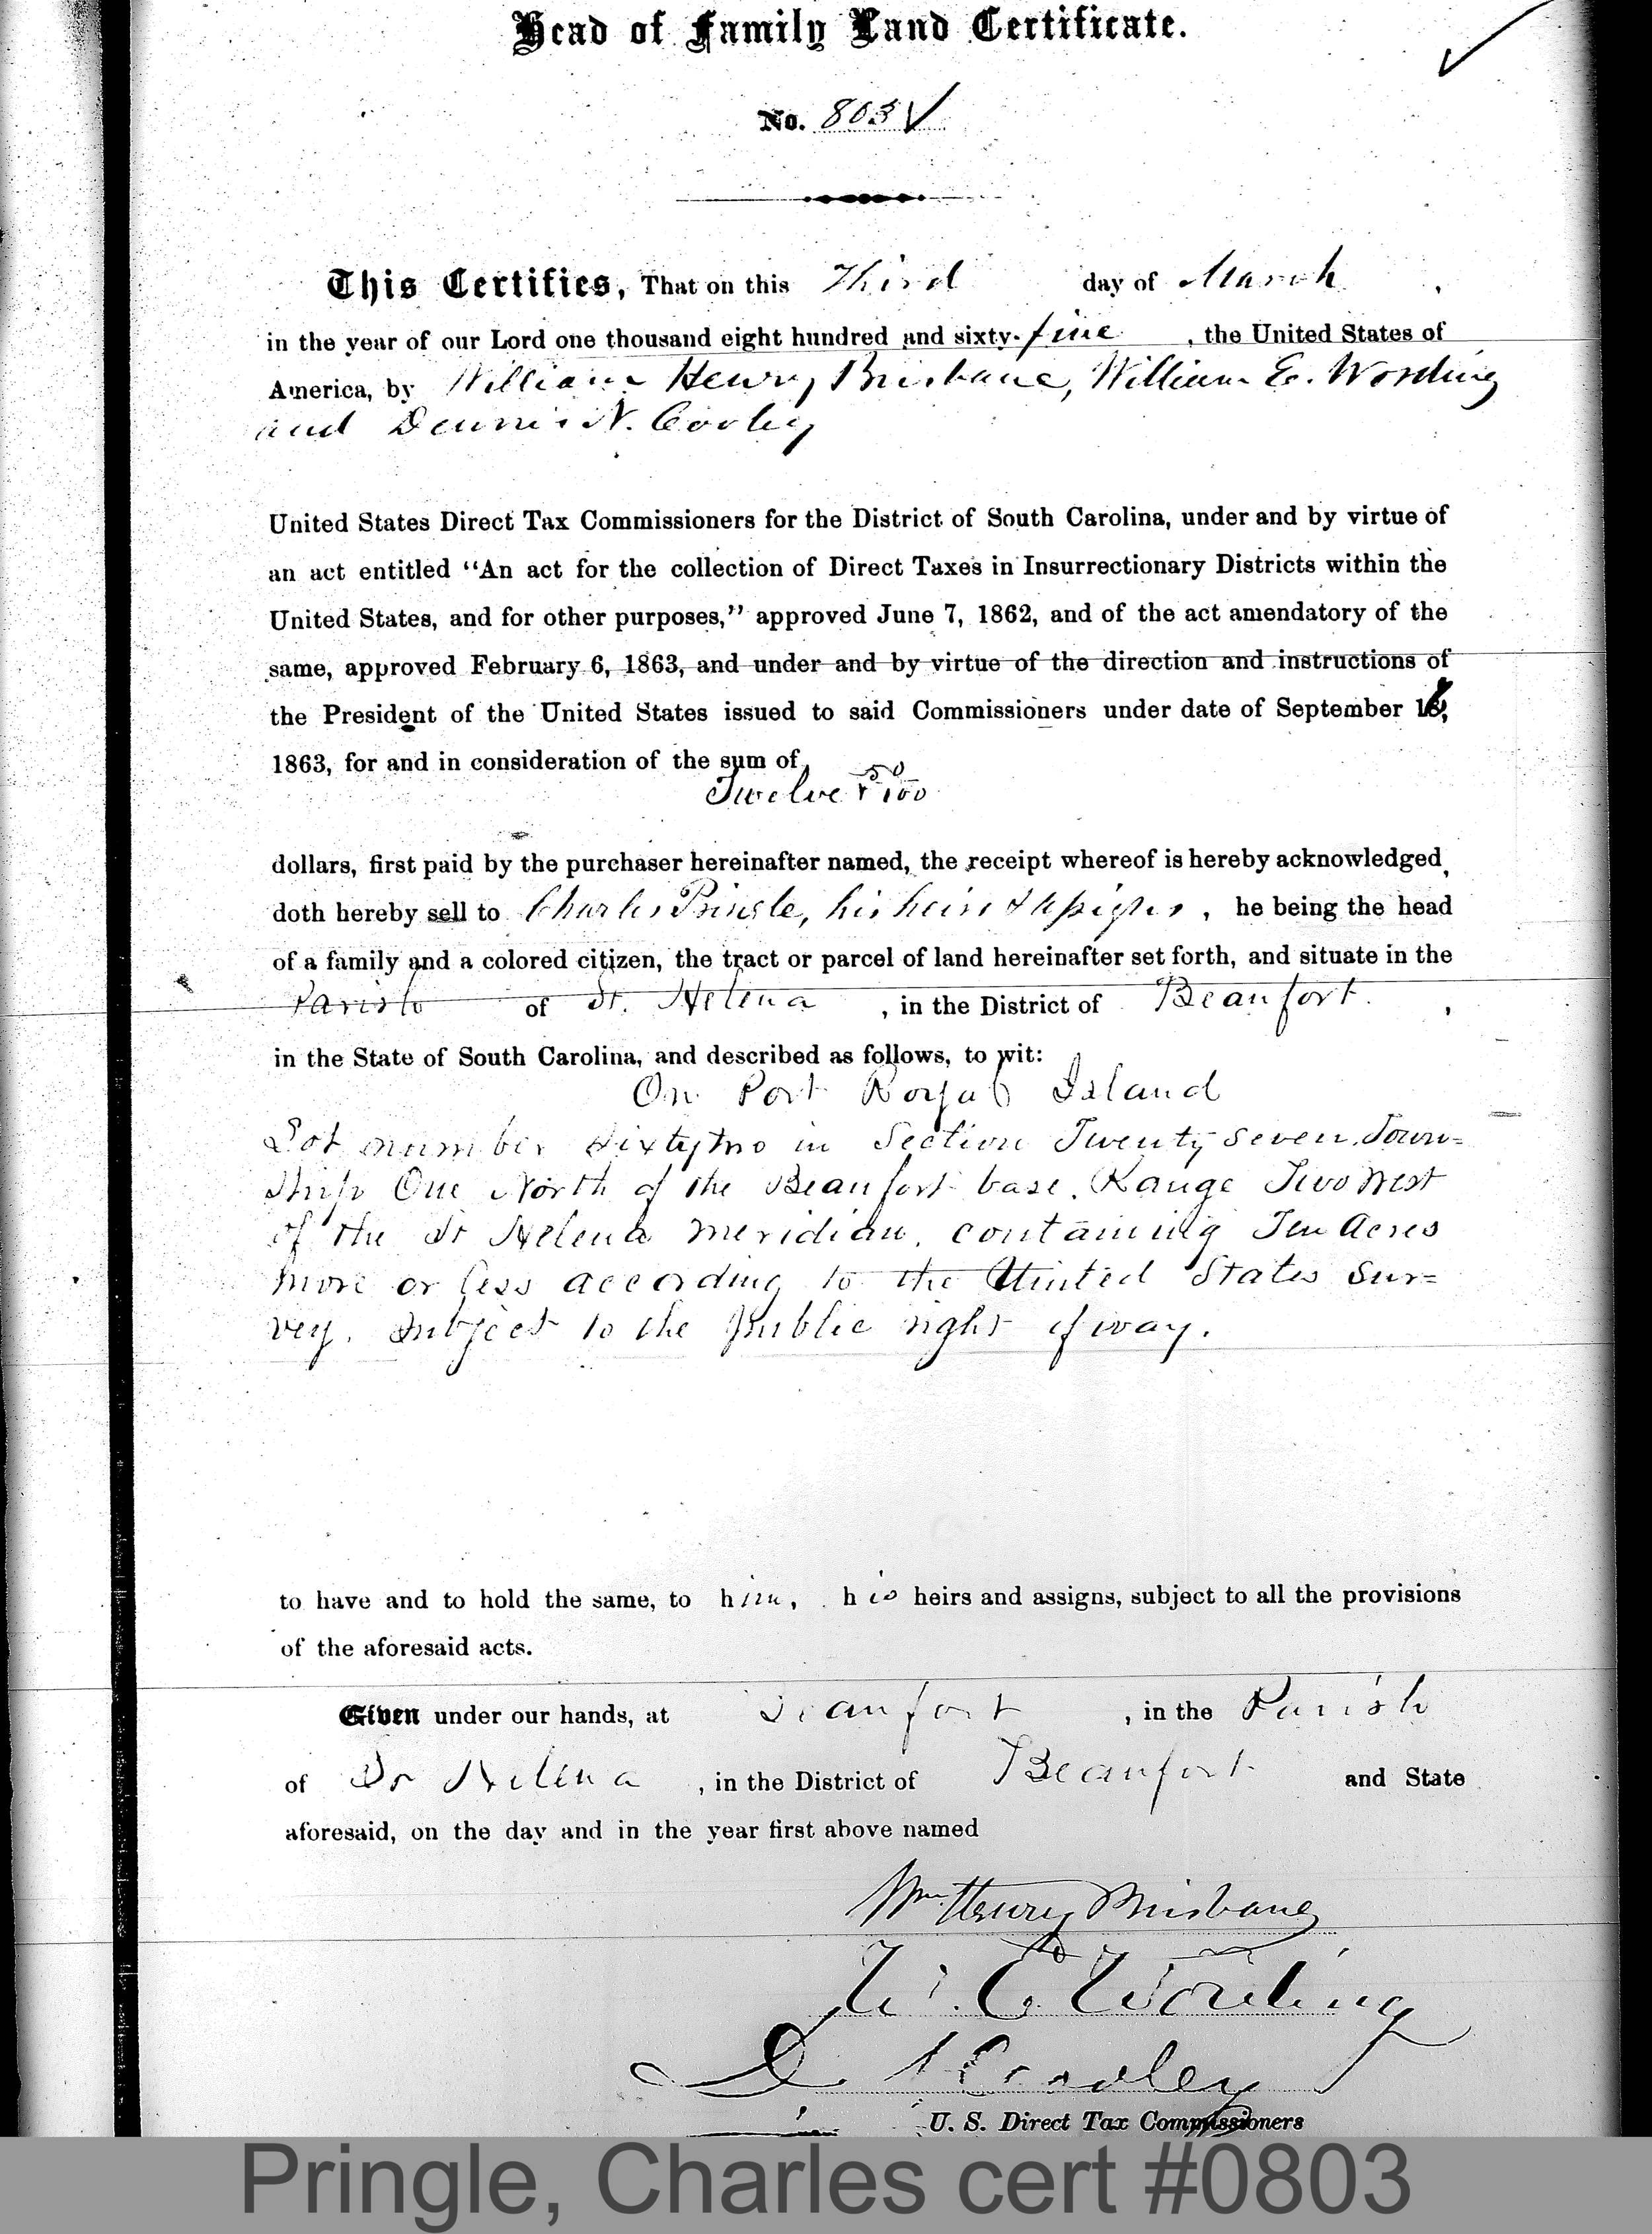 Head of Family Land Certificate.
No. 803
This Certifies, That on this Third day of March,
in the year of our Lord one thousand eight hundred and sixty-five, the United States of
America, by William Henry Brisbane, William E. Wording
and Dennis N. Cooley
United States Direct Tax Commissioners for the District of South Carolina, under and by virtue of
an act entitled "An act for the collection of Direct Taxes in Insurrectionary Districts within the
United States, and for other purposes," approved June 7, 1862, and of the act amendatory of the
same, approved February 6, 1863, and under and by virtue of the direction and instructions of
the President of the United States issued to said Commissioners under date of September 16,
1863, for and in consideration of the sum of
Twelve & 50/100
dollars, first paid by the purchaser hereinafter named, the receipt whereof is hereby acknowledged,
doth hereby sell to Charles Pringle, his heirs & assigns, he being the head
of a family and a colored citizen, the tract or parcel of land hereinafter set forth, and situate in the
Parish of St. Helena, in the District of Beaufort,
in the State of South Carolina, and described as follows, to wit:
On Port Royal Island
Lot number Sixty two in Section Twenty seven, Town=
ship One North of the Beaufort base, Range Two West
of the St Helena meridian, containing Ten Acres
more or less according to the United States Sur=
vey. Subject to the Public right of way.
to have and to hold the same, to him, his heirs and assigns, subject to all the provisions
of the aforesaid acts.
Given under our hands, at Beaufort, in the Parish
of St Helena, in the District of Beaufort and State
aforesaid, on the day and in the year first above named
Wm Henry Brisbane
W. E. Wording
D N Cooley
U. S. Direct Tax Commissioners
Pringle, Charles cert #0803